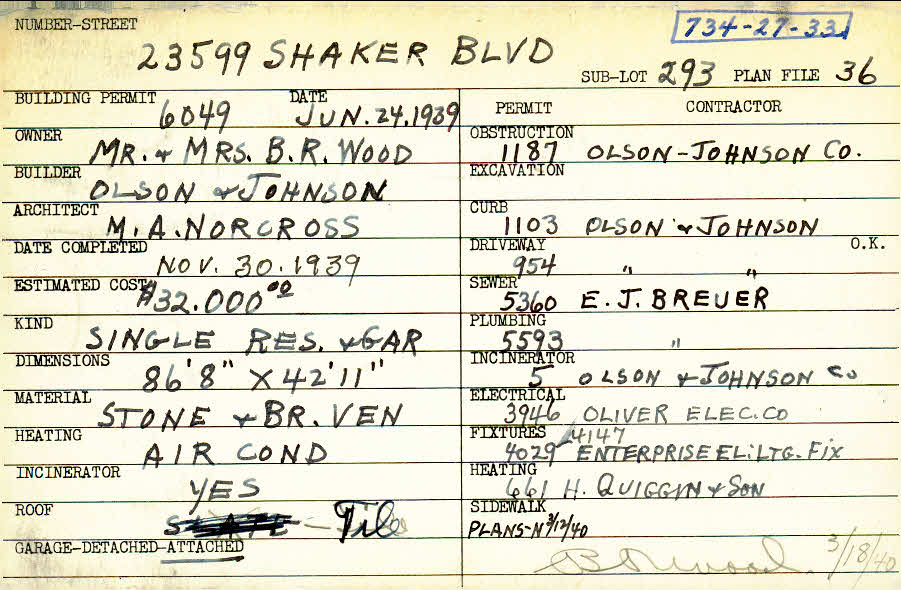 NUMBER-STREET
734-27-33
23599 SHAKER BLVD
SUB-LOT 293 PLAN FILE 36
BUILDING PERMIT 6049 DATE JUN. 24. 1939
OWNER MR. & MRS. B. R. WOOD
BUILDER OLSON & JOHNSON
ARCHITECT M. A. NORCROSS
DATE COMPLETED NOV. 30. 1939
ESTIMATED COST $32.000⁰⁰
KIND SINGLE RES. & GAR
DIMENSIONS 86'8" X 42'11"
MATERIAL STONE & BR. VEN
HEATING AIR COND
INCINERATOR YES
ROOF SLATE - Tile
GARAGE-DETACHED-ATTACHED
PERMIT CONTRACTOR
OBSTRUCTION 1187 OLSON-JOHNSON CO.
EXCAVATION
CURB 1103 OLSON & JOHNSON
DRIVEWAY 954 " " O.K.
SEWER 5360 E. J. BREUER
PLUMBING 5593 "
INCINERATOR 5 OLSON & JOHNSON CO
ELECTRICAL 3946 OLIVER ELEC. CO
FIXTURES 4147
4029 ENTERPRISE EL. LTG. FIX
HEATING 661 H. QUIGGIN & SON
SIDEWALK
PLANS-N 3/12/40
B R Wood 3/18/40